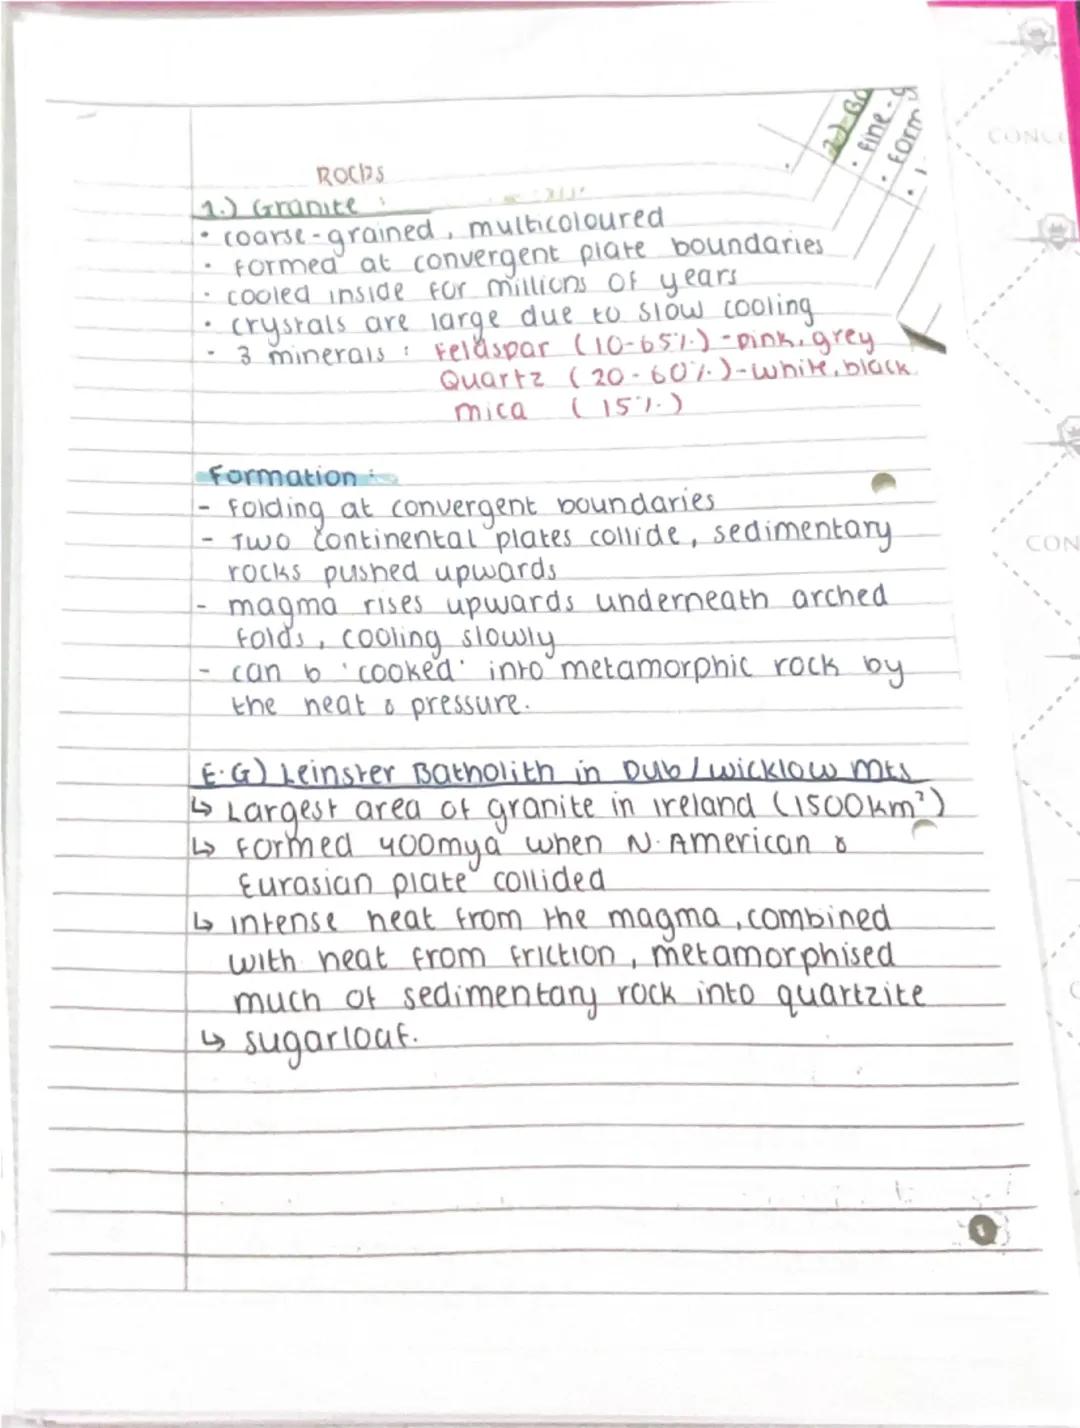 ROCKS
1.) Granite :
• coarse-grained, multicoloured
• formed at convergent plate boundaries
• cooled inside for millions of years
• crystals are large due to slow cooling
• 3 minerals : Feldspar (10-65%) - pink, grey
Quartz (20-60%) - white, black
mica (15%)
Formation :
- folding at convergent boundaries
- Two continental plates collide, sedimentary
rocks pushed upwards
- magma rises upwards underneath arched
folds, cooling slowly
- can b 'cooked' into metamorphic rock by
the heat & pressure.
E.G) Leinster Batholith in Dub/wicklow mts
↳ Largest area of granite in ireland (1500km²)
↳ formed 400mya when N. American &
Eurasian plate collided
↳ intense heat from the magma, combined
with heat from friction, metamorphised
much of sedimentary rock into quartzite
↳ sugarloaf.
2.) Ba
• fine-g
• form
CON